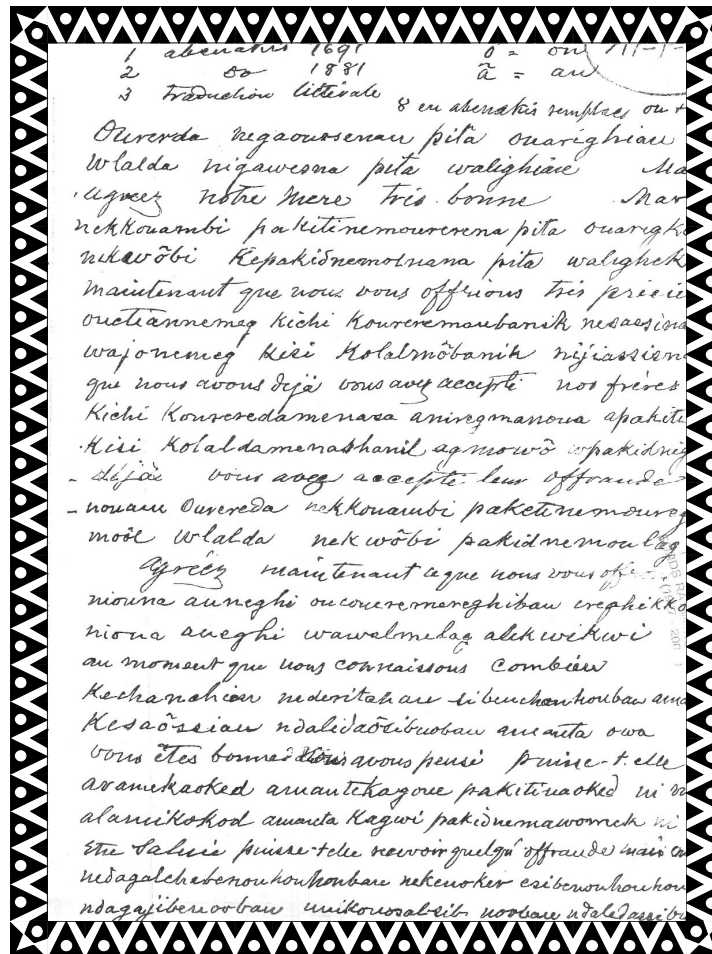 1 abenakis 1691 ô = ou
2 do 1881 ã = au
3 traduction littérale
8 en abenakis remplace ou
Ourerda negaoussenau pita ouarighiau
Wlalda nigawesna pita walighiane Ma
agreez notre Mere très bonne Mar
nekkouambi pakitinemourerena pita ouarigk
nekwôbi Kepakidnemolnana pita walighek
maintenant que nous vous offrions très précie
ouctiannemag Kichi Koureremaubanik nesaesina
wajonemeg Kisi Kolalmôbanik nijiassisn
que nous avons dejà vous avez accepté nos frères
Kichi Koureredamenasa aniregmanoua apakiti
Kisi Kolaldamenashanil agmowô wpakidnig
- déjà vous avez accepté leur offrande
- nouau Ourereda nekkouambi paketinemoureg
moôl Wlalda nekwôbi pakidnemoulag
Agréez maintenant ce que nous vous
niouna auneghi ououeremereghibau ereghikko
nioua aneghi wawalmelag alekwikwi
au moment que nous connaissons combien
Kechanehian nederitehau sibenchenhoubau ama
Kesaôssian ndalidaôsibnobau amanta owa
vous êtes bonne nous avons pensé puisse-t-elle
aramekaoked amantekagoue pakitinaoked ni
alamikokod amanta Kagwi pakidnemawomek ni
être Saluée puisse-t-elle recevoir quelqu'offrande mais
nedagalchabenouhouhoubau nekenoker esibenouhouhou
ndagajibenooban unikonosabsib nooban ndaledassibn